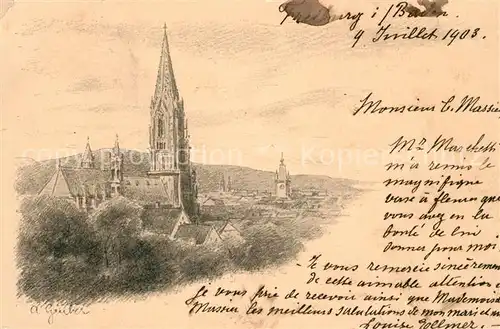 Freiburg i/Baden.
9 Juillet 1903.
Monsieur C. Massie
Mr Marchetti
m'a remis le
magnifique
vase à fleurs que
vous avez eu la
bonté de lui
donner pour moi.
Je vous remercie sincèrement
de cette aimable attention et
je vous prie de recevoir ainsi que Mademoiselle
Massie les meilleurs salutations de mon mari et
Louise